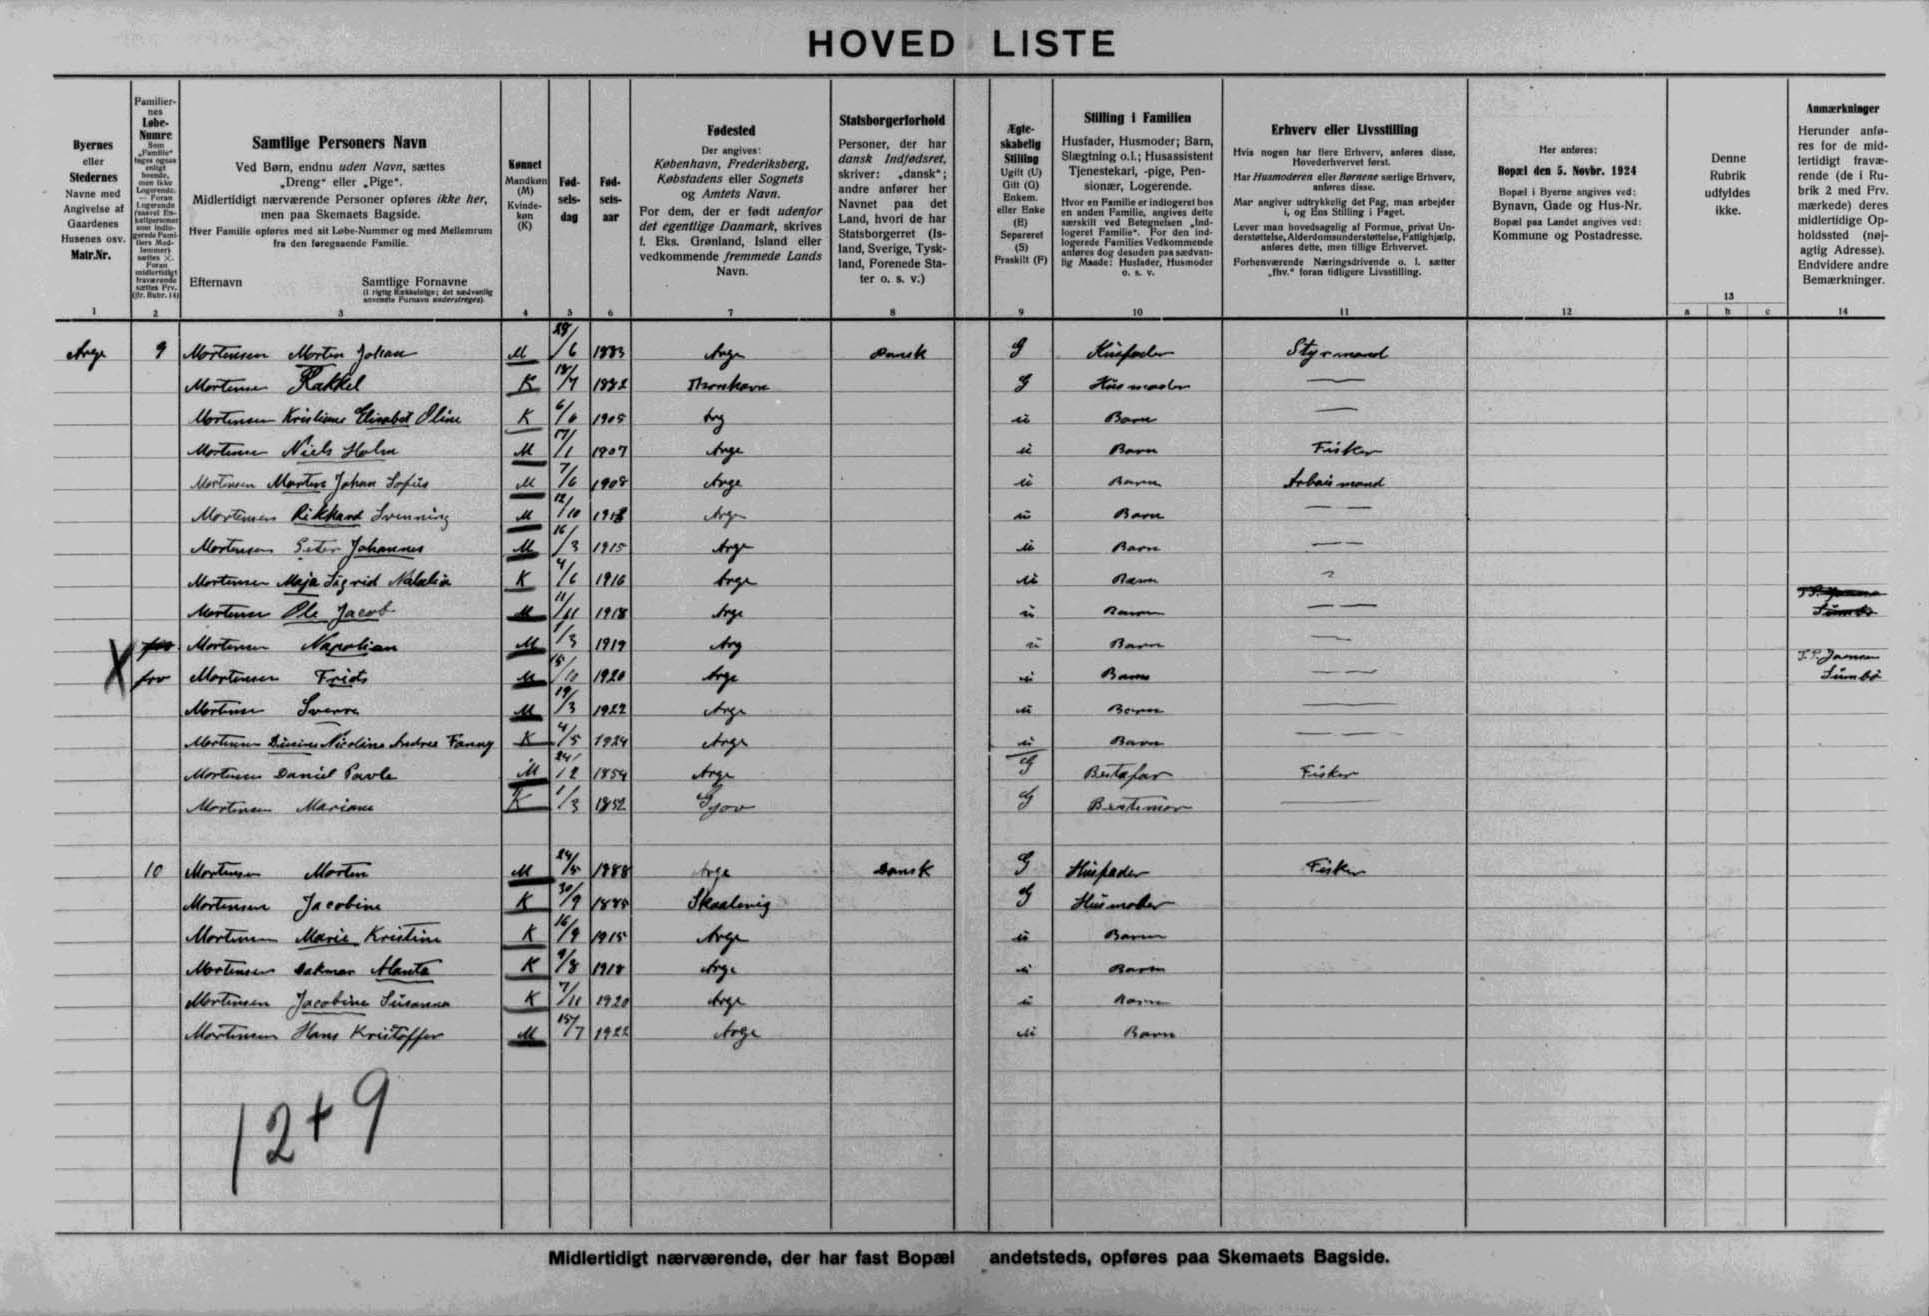 HOVED LISTE
Byernes
eller
Stedernes
Navne med
Angivelse af
Gaardenes
Husenes osv.
Matr.Nr.
1
Familier-
nes
Løbe-
Numre
Som
„Familie“
tages ogsaa
enligt
boende,
men ikke
Logerende.
— Foran
Logerende
(saavel En-
keltpersoner
som indlo-
gerede Fami-
liers Med-
lemmer)
sættes X.
Foran
midlertidigt
fraværende
sættes Frv.
(jfr. Rubr. 14)
2
Samtlige Personers Navn
Ved Børn, endnu uden Navn, sættes
„Dreng“ eller „Pige“.
Midlertidigt nærværende Personer opføres ikke her,
men paa Skemaets Bagside.
Hver Familie opføres med sit Løbe-Nummer og med Mellemrum
fra den foregaaende Familie.
Efternavn Samtlige Fornavne
(i rigtig Rækkefølge; det sædvanlig
anvendte Fornavn understreges).
3
Kønnet
Mandkøn
(M)
Kvinde-
køn
(K)
4
Fød-
sels-
dag
5
Fød-
sels-
aar
6
Fødested
Der angives:
København, Frederiksberg,
Købstadens eller Sognets
og Amtets Navn.
For dem, der er født udenfor
det egentlige Danmark, skrives
f. Eks. Grønland, Island eller
vedkommende fremmede Lands
Navn.
7
Statsborgerforhold
Personer, der har
dansk Indfødsret,
skriver: „dansk“;
andre anfører her
Navnet paa det
Land, hvori de har
Statsborgerret (Is-
land, Sverige, Tysk-
land, Forenede Sta-
ter o. s. v.)
8
Ægte-
skabelig
Stilling
Ugift (U)
Gift (G)
Enkem.
eller Enke
(E)
Separeret
(S)
Fraskilt (F)
9
Stilling i Familien
Husfader, Husmoder; Barn,
Slægtning o.l.; Husassistent
Tjenestekarl, -pige, Pen-
sionær, Logerende.
Hvor en Familie er indlogeret hos
en anden Familie, angives dette
særskilt ved Betegnelsen „Ind-
logeret Familie“. For den ind-
logerede Families Vedkommende
anføres dog desuden paa sædvan-
lig Maade: Husfader, Husmoder
o. s. v.
10
Erhverv eller Livsstilling
Hvis nogen har flere Erhverv, anføres disse,
Hovederhvervet først.
Har Husmoderen eller Børnene særlige Erhverv,
anføres disse.
Man angiver udtrykkelig det Fag, man arbejder
i, og Ens Stilling i Faget.
Lever man hovedsagelig af Formue, privat Un-
derstøttelse, Alderdomsunderstøttelse, Fattighjælp,
anføres dette, men tillige Erhvervet.
Forhenværende Næringsdrivende o. l. sætter
„fhv.“ foran tidligere Livsstilling.
11
Her anføres:
Bopæl den 5. Novbr. 1924
Bopæl i Byerne angives ved:
Bynavn, Gade og Hus-Nr.
Bopæl paa Landet angives ved:
Kommune og Postadresse.
12
Denne
Rubrik
udfyldes
ikke.
13
a b c
Anmærkninger
Herunder anfø-
res for de mid-
lertidigt fravæ-
rende (de i Ru-
brik 2 med Frv.
mærkede) deres
midlertidige Op-
holdssted (nøj-
agtig Adresse).
Endvidere andre
Bemærkninger.
14
Arge 9 Mortensen Morten Johan M 29/6 1883 Arge Dansk G Husfader Styrmand
Mortensen Rakkel K 18/7 1882 Thorshavn G Husmoder
Mortensen Kristiane Elisabet Oline K 6/6 1905 Arg u Barn
Mortensen Niels Holm M 17/1 1907 Arge u Barn Fisker
Mortensen Morten Johan Sofus M 7/6 1908 Arge u Barn Arbeismand
Mortensen Rikkard Svenning M 12/10 Arge u Barn
Mortensen Peter Johannes M 16/3 1915 Arge u Barn
Mortensen Maja Sigrid Natalia K 4/6 1916 Arge u Barn
Mortensen Ole Jacob M 11/11 1918 Arge u Barn Sumbø
X frv Mortensen Napolian M 1/3 1919 Arg u Barn
frv Mortensen Frids M 15/10 1920 Arge u Barn Sumbø
Mortensen Sverre M 19/3 1922 Arge u Barn
Mortensen Nicolina Andrea Fanny K 4/5 1924 Arge u Barn
Mortensen Daniel Pavle M 24/12 1854 Arge G Bestafar Fisker
Mortensen Mariane K 1/3 1852 Gjov G Bestemor
10 Mortensen Morten M 24/5 1888 Arge Dansk G Husfader Fisker
Mortensen Jacobine K 30/9 1885 Skaalevig G Husmoder
Mortensen Marie Kristine K 16/9 1915 Arge u Barn
Mortensen Dakmar Alanta K 9/8 1918 Arge u Barn
Mortensen Jacobine Susanna K 7/11 1920 Arge u Barn
Mortensen Hans Kristoffer M 15/7 1922 Arge u Barn
12+9
Midlertidigt nærværende, der har fast Bopæl andetsteds, opføres paa Skemaets Bagside.